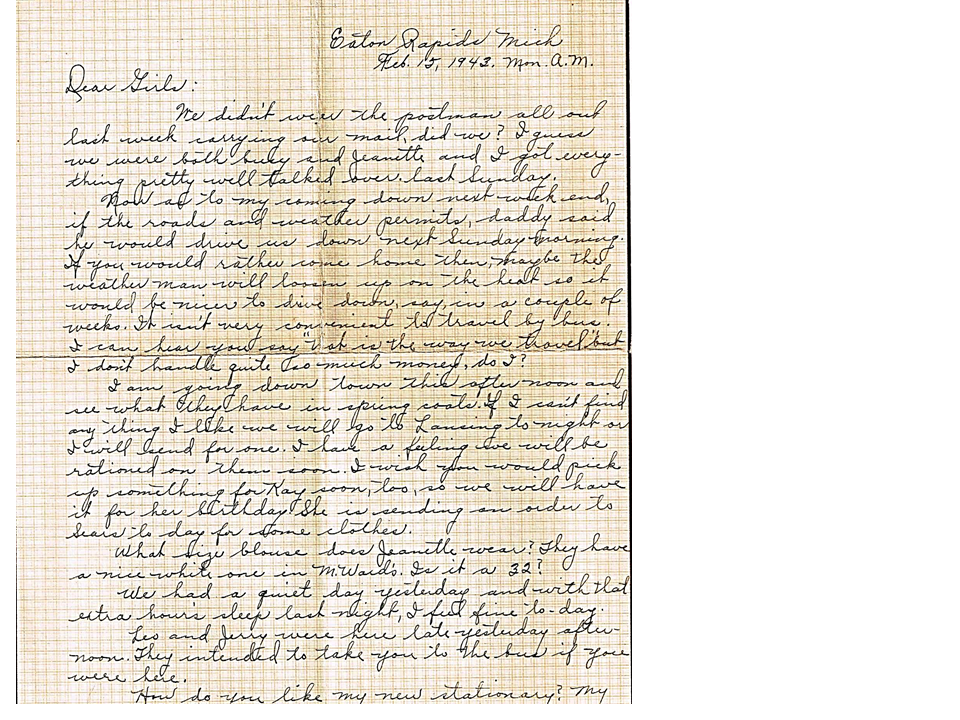 Eaton Rapids Mich
Feb. 15, 1943. Mon. A.M.
Dear Girls:
We didn't wear the postman all out
last week carrying our mail, did we? I guess
we were both busy and Jeanette and I got every-
thing pretty well talked over last Sunday.
Now as to my coming down next week end,
if the roads and weather permits, daddy said
he would drive us down next Sunday morning.
If you would rather come home then, maybe the
weather man will loosen up on the heat so it
would be nicer to drive down, say, in a couple of
weeks. It isn't very convenient to travel by bus.
I can hear you say "that is the way we travel" but
I don't handle quite too much money, do I?
I am going down town this after noon and
see what they have in spring coats. If I can't find
any thing I like we will go to Lansing to night or
I will send for one. I have a feeling we will be
rationed on them soon. I wish you would pick
up something for Kay soon, too, so we will have
it for her birthday. She is sending an order to
Sears to day for some clothes.
What size blouse does Jeanette wear? They have
a nice white one in M. Ward's. Is it a 32?
We had a quiet day yesterday and with that
extra hour's sleep last night, I feel fine to-day.
Leo and Jerry were here late yesterday after-
noon. They intended to take you to the bus if you
were here.
How do you like my new stationary? My